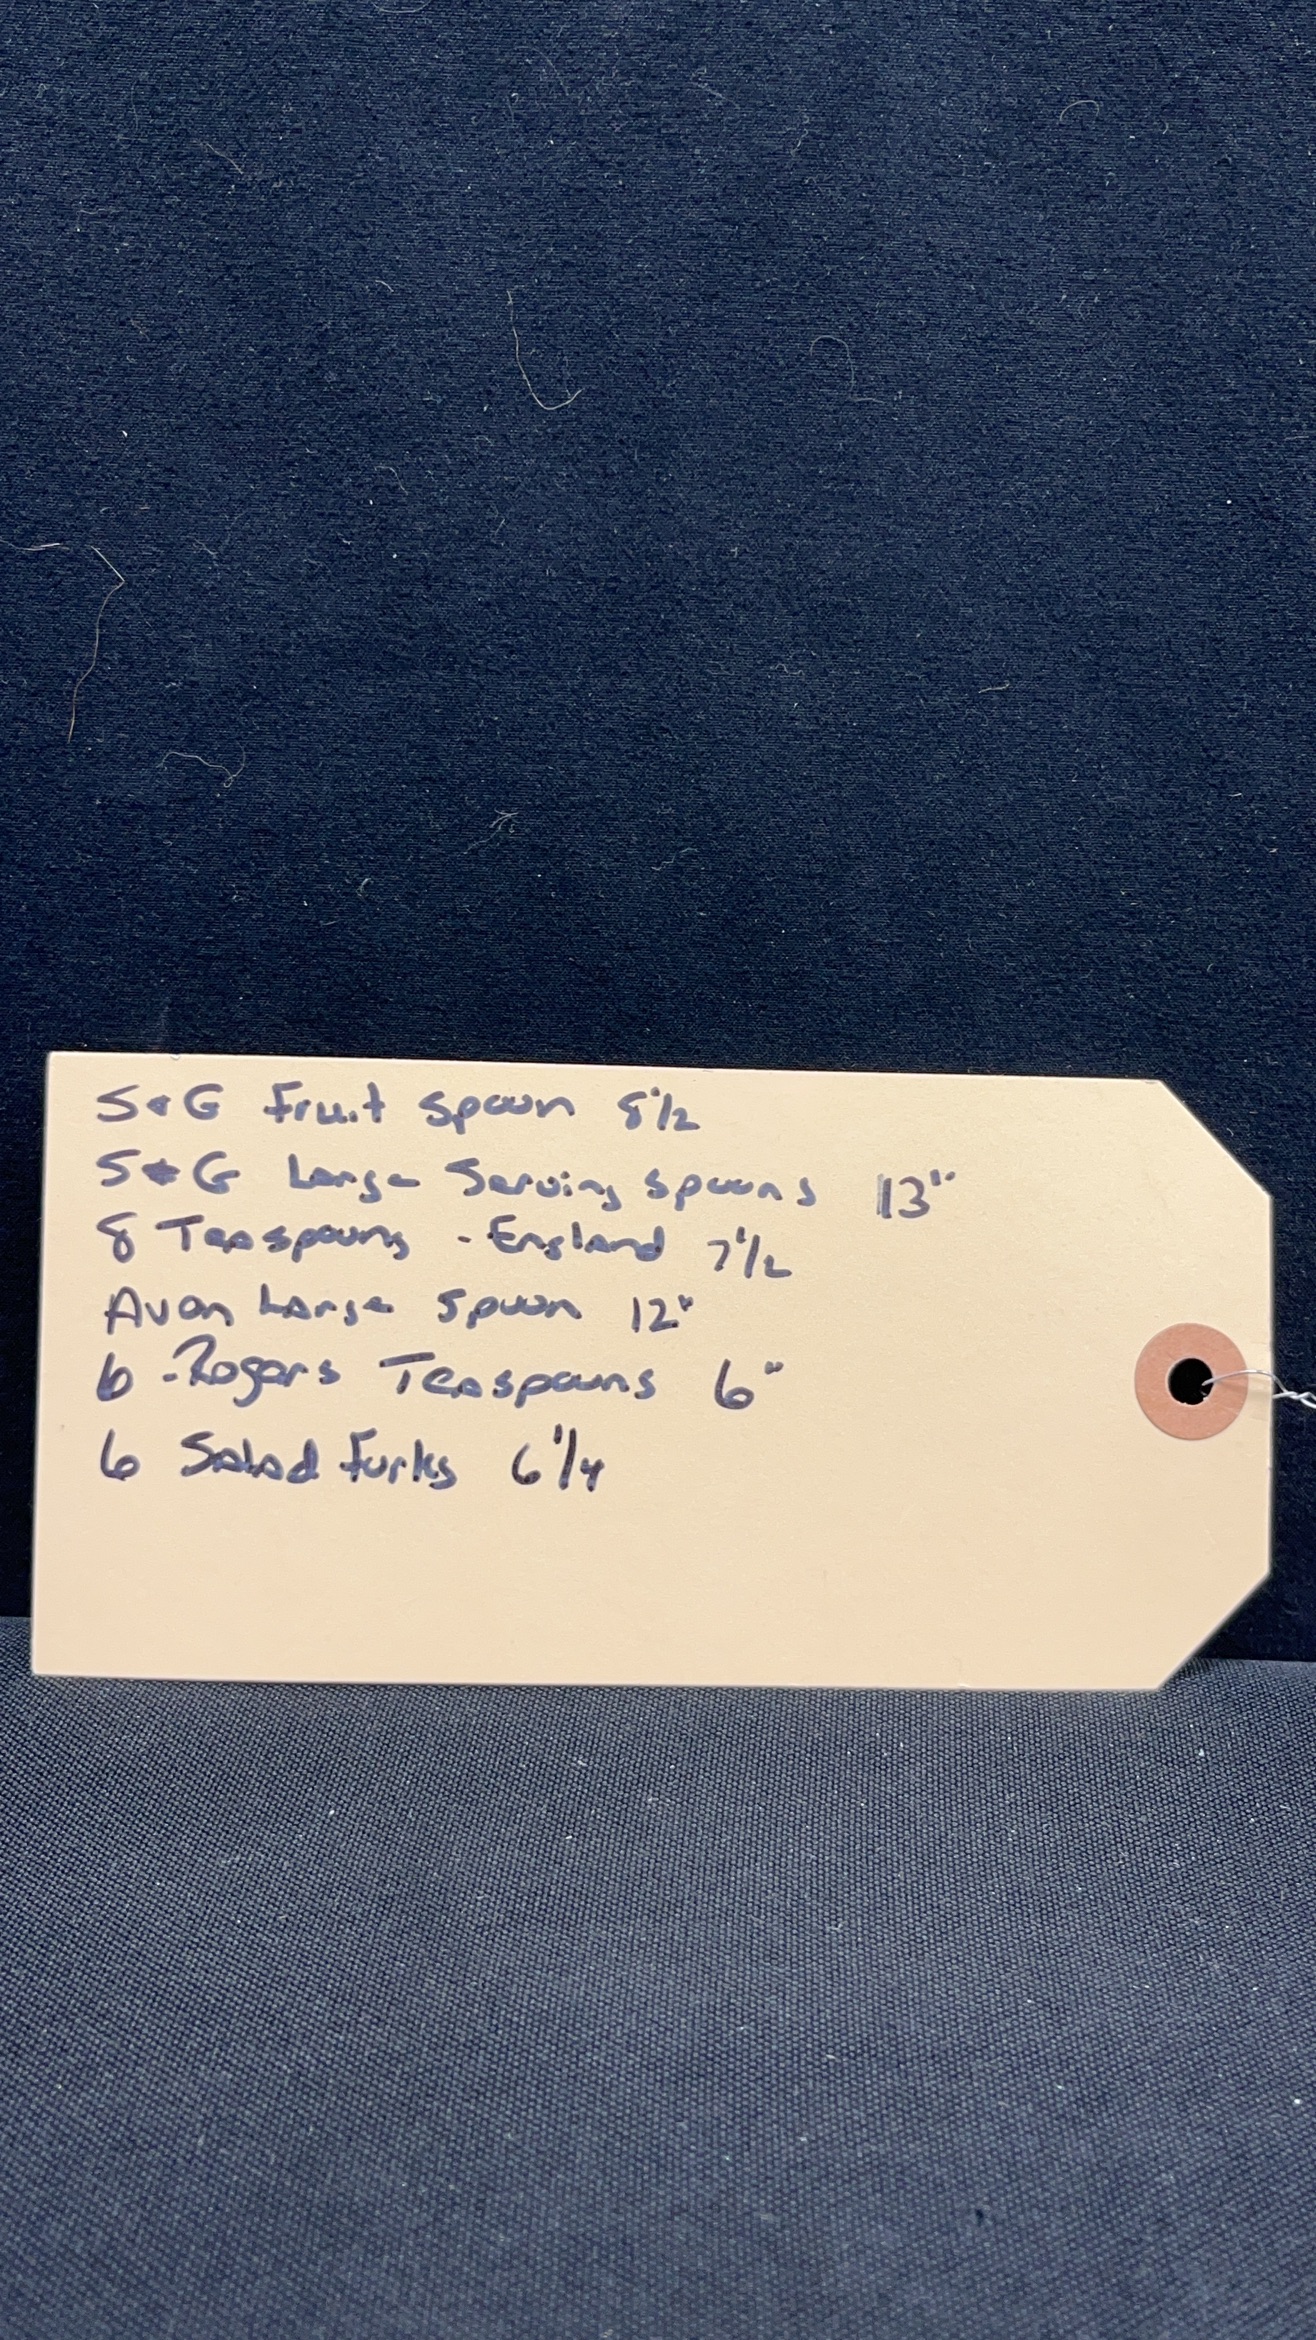 S+G Fruit Spoon 8 1/2
S+G Large Serving Spoons 13"
8 Teaspoons - England 7 1/2
Avon Large Spoon 12"
6 - Rogers Teaspoons 6"
6 Salad Forks 6 1/4